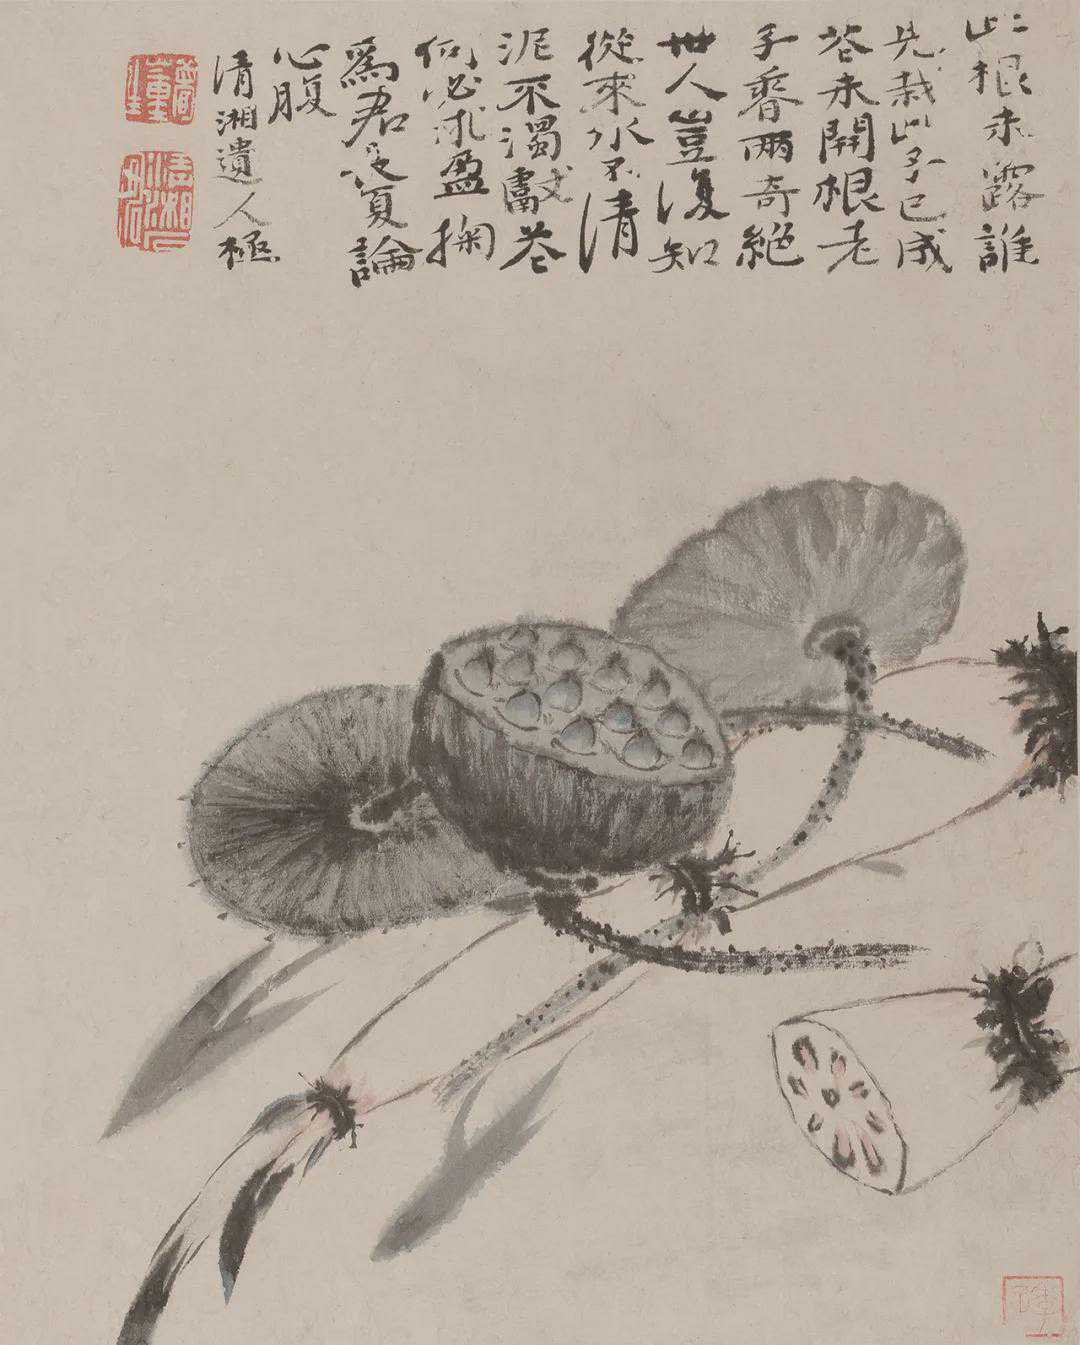 此根未露誰
先栽此子已成
花未開根老
子香兩奇絕
世人豈復知
從來水不清
泥不濁獻花
何必求盈掬
爲君長夏論
心腹
清湘遺人極